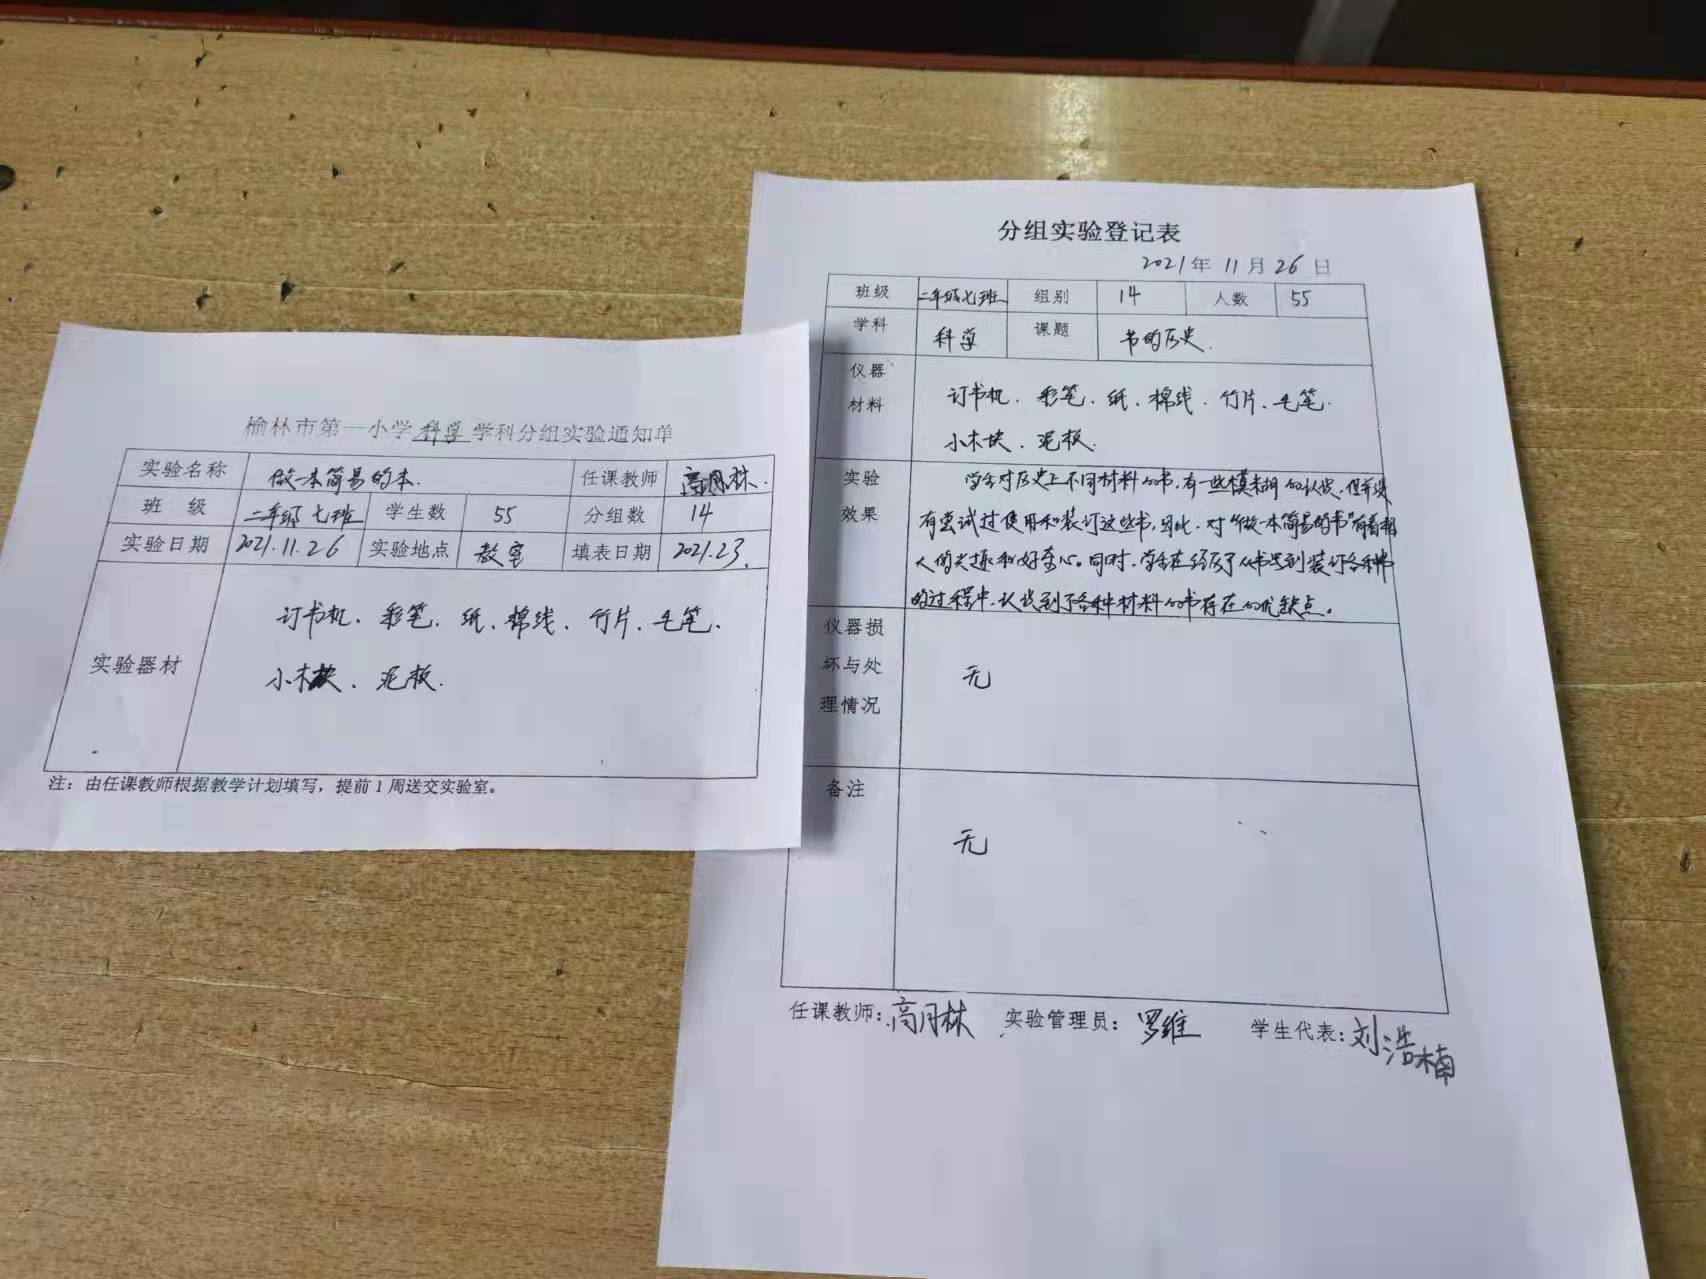 榆林市第一小学科学学科分组实验通知单
实验名称 做一本简易的本. 任课教师 高月林.
班 级 二年级七班 学生数 55 分组数 14
实验日期 2021.11.26 实验地点 教室 填表日期 2021.23.
实验器材 订书机、彩笔、纸、棉线、竹片、毛笔.
小木块、泥板.
注：由任课教师根据教学计划填写，提前1周送交实验室。
分组实验登记表
2021年 11月 26日
班级 二年级七班 组别 14 人数 55
学科 科学 课题 书的历史.
仪器
材料
订书机、彩笔、纸、棉线、竹片、毛笔.
小木块、泥板.
实验
效果
学生对历史上不同材料的书,有一些模糊的认识,但并没
有尝试过使用和装订这些书,因此,对“做一本简易的书”有着相
人的兴趣和好奇心。同时,学生在经历了从书写到装订各种书
的过程中,认识到了各种材料的书存在的优缺点。
仪器损
坏与处
理情况
无
备注
无
任课教师：高月林 实验管理员：罗维 学生代表：刘浩楠